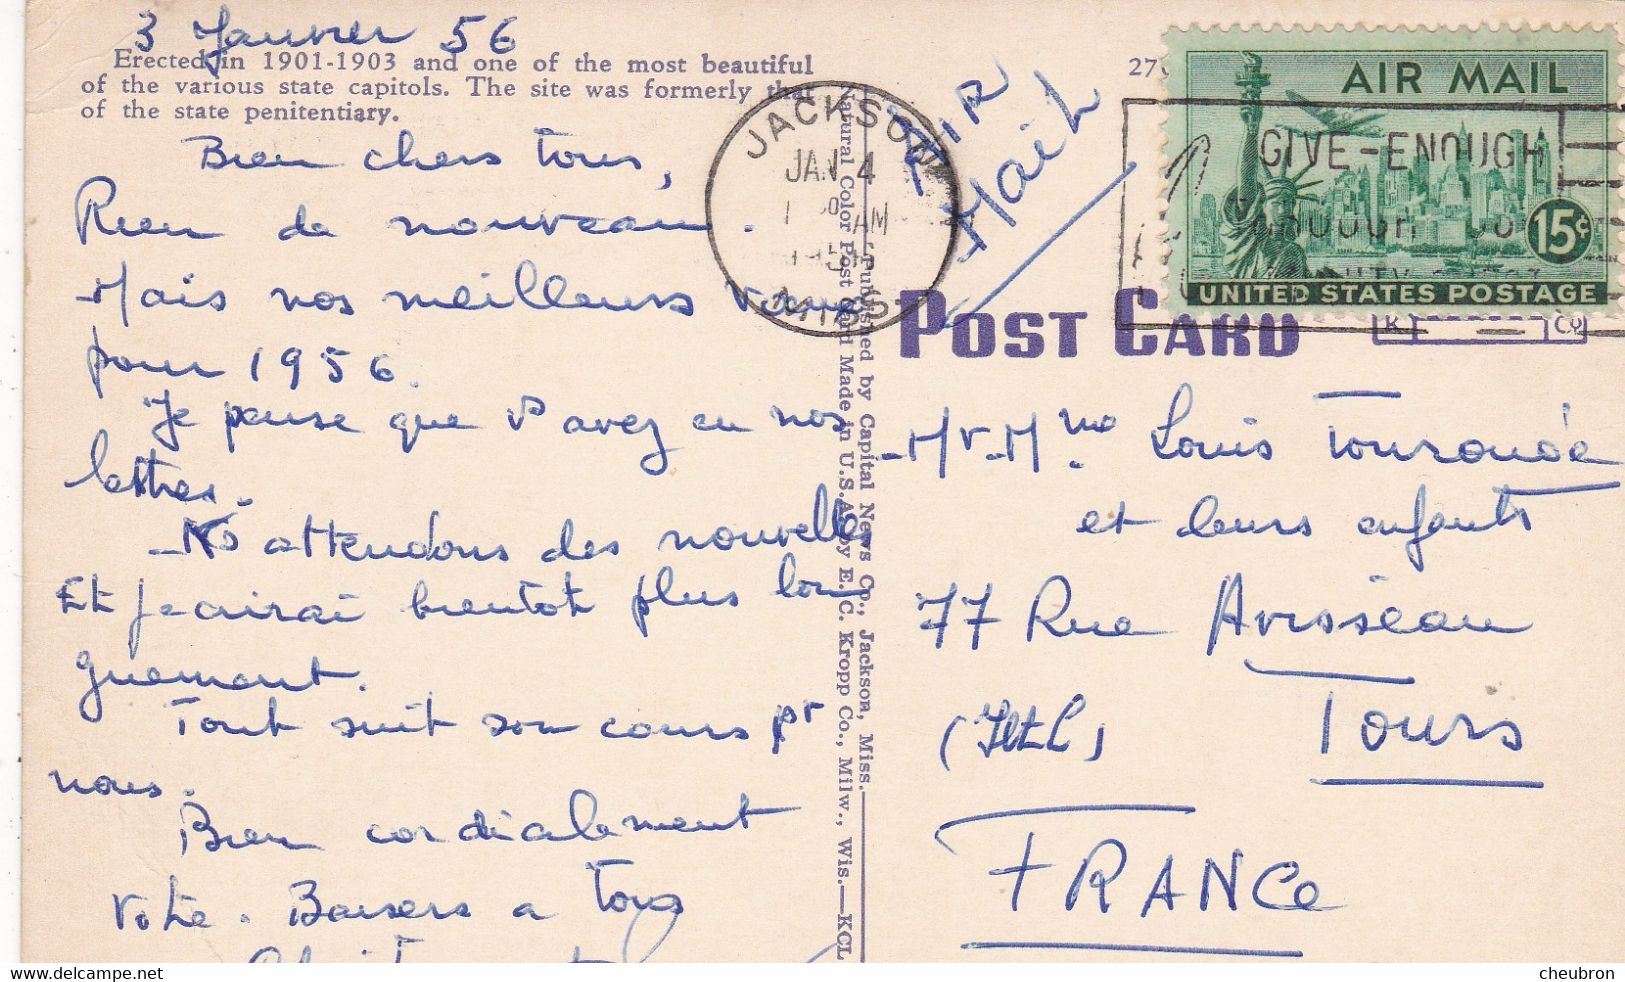 3 Janvier 56
Erected in 1901-1903 and one of the most beautiful
of the various state capitols. The site was formerly that
of the state penitentiary.
Bien chers tous,
Rien de nouveau.
Mais nos meilleurs vœux
pour 1956.
Je pense que vs avez eu nos
lettres.
Ns attendons des nouvelles
Et je écrirai bientôt plus lon
guement.
Tout suit son cours pr
nous.
Bien cordialement
Votre. Baisers a tous
Natural Color Post Card Made in U.S.A. by E. C. Kropp Co., Milw., Wis.—KCL
Published by Capital News Co., Jackson, Miss.
JACKSON
JAN 4
AM
MISS
AIR
Mail
AIR MAIL
GIVE-ENOUGH
15¢
UNITED STATES POSTAGE
POST CARD
K Co
Mr Mme Louis Tourondée
et leurs enfants
77 Rue Avisseau
Tours
(I et L)
FRANCE
www.delcampe.net
cheubron